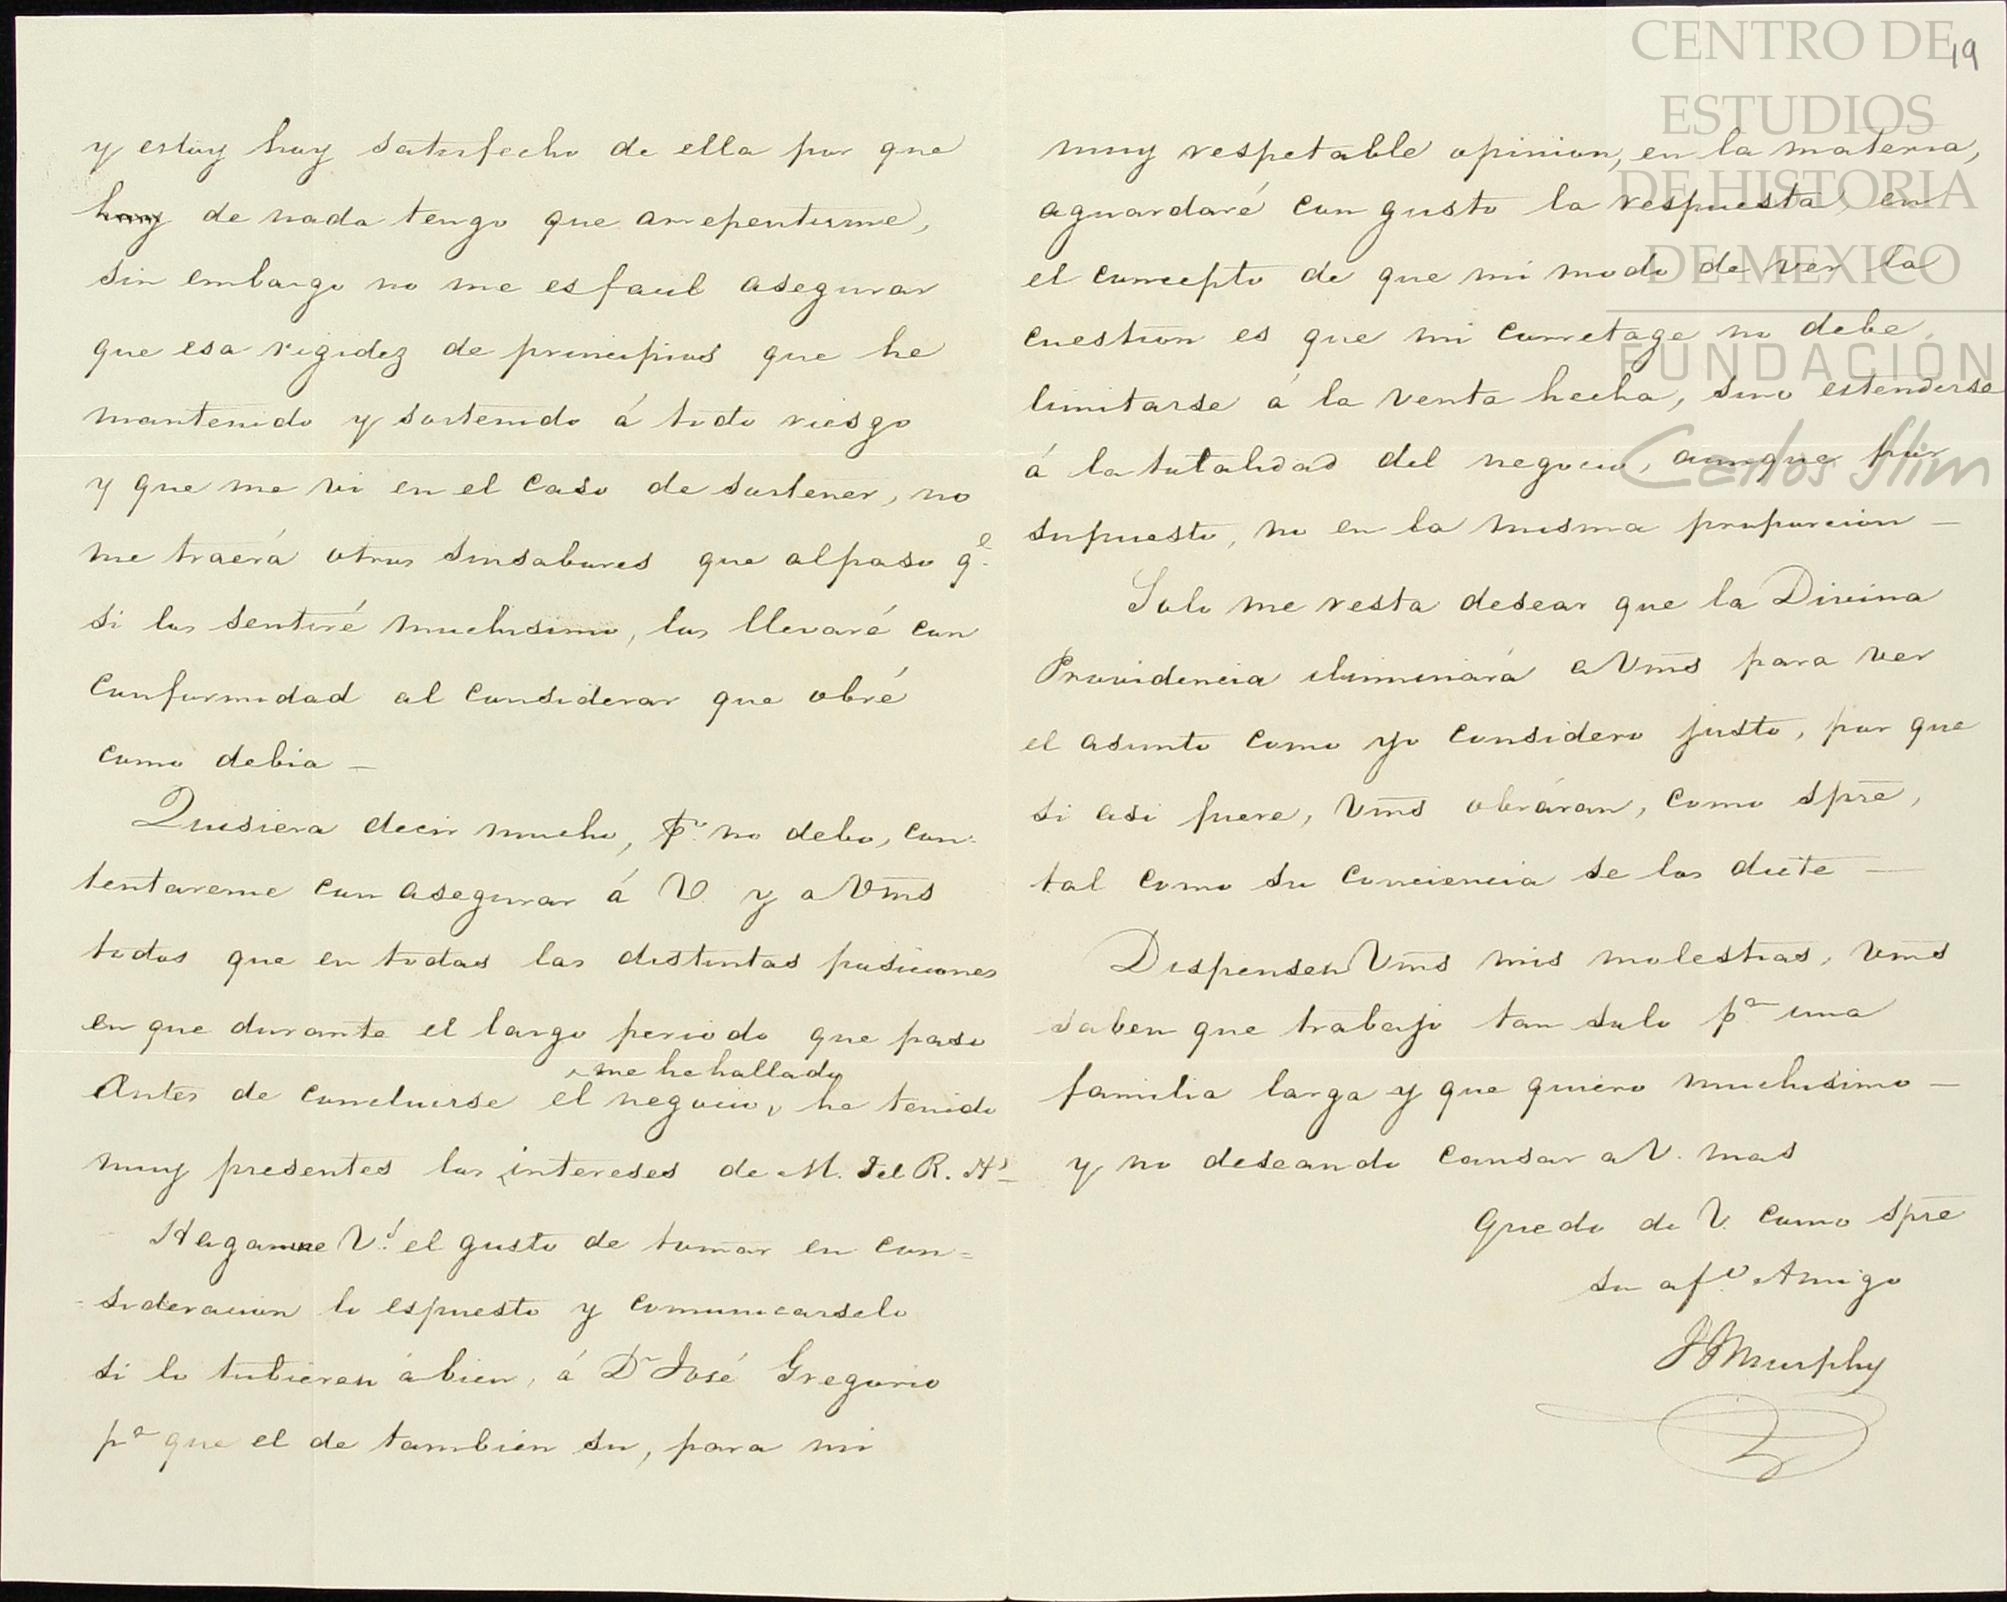 y estoy hoy satisfecho de ella por que
hoy de nada tengo que arrepentirme,
sin embargo no me es facil asegurar
que esa rigidez de principios que he
mantenido y sostenido á todo riesgo
y que me vi en el caso de sostener, no
me traerá otros sinsabores que al paso q.e
si los sentiré muchisimo, los llevaré con
conformidad al considerar que obré
como debia —
Quisiera decir mucho, p.o no debo, con-
tentareme con asegurar á V. y a Vms
todos que en todas las distintas posiciones
en que durante el largo periodo que paso
me he hallado
Antes de concluirse el negocio, he tenido
muy presentes los intereses de M. del R. H.s
Hagame V.d el gusto de tomar en con=
sideracion lo espuesto y comunicarselo
si lo tubieren á bien, á Dn José Gregorio
pa que el de tambien su, para mi
19
muy respetable opinion, en la materia,
aguardaré con gusto la respuesta, en
el concepto de que mi modo de ver la
cuestion es que mi corretage no debe
limitarse á la venta hecha, sino estenderse
á la totalidad del negocio, aunque por
supuesto, no en la misma proporcion —
Solo me resta desear que la Divina
Providencia iluminará a Vms para ver
el asunto como yo considero justo, por que
si asi fuere, Vms obráran, como spre,
tal como su conciencia se los dicte —
Dispensen Vms mis molestias, Vms
saben que trabajo tan solo pa una
familia larga y que quiero muchisimo —
y no deseando cansar a V. mas
Quedo de V. como spre
su af.o Amigo
J Murphy
CENTRO DE
ESTUDIOS
DE HISTORIA
DE MEXICO
FUNDACIÓN
Carlos Slim